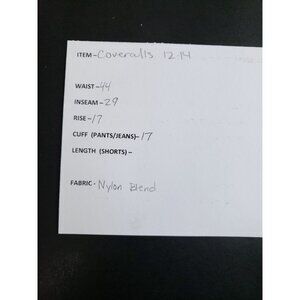 ITEM-Coveralls 12-14
WAIST-44
INSEAM-29
RISE-17
CUFF (PANTS/JEANS)-17
LENGTH (SHORTS)-
FABRIC- Nylon Blend